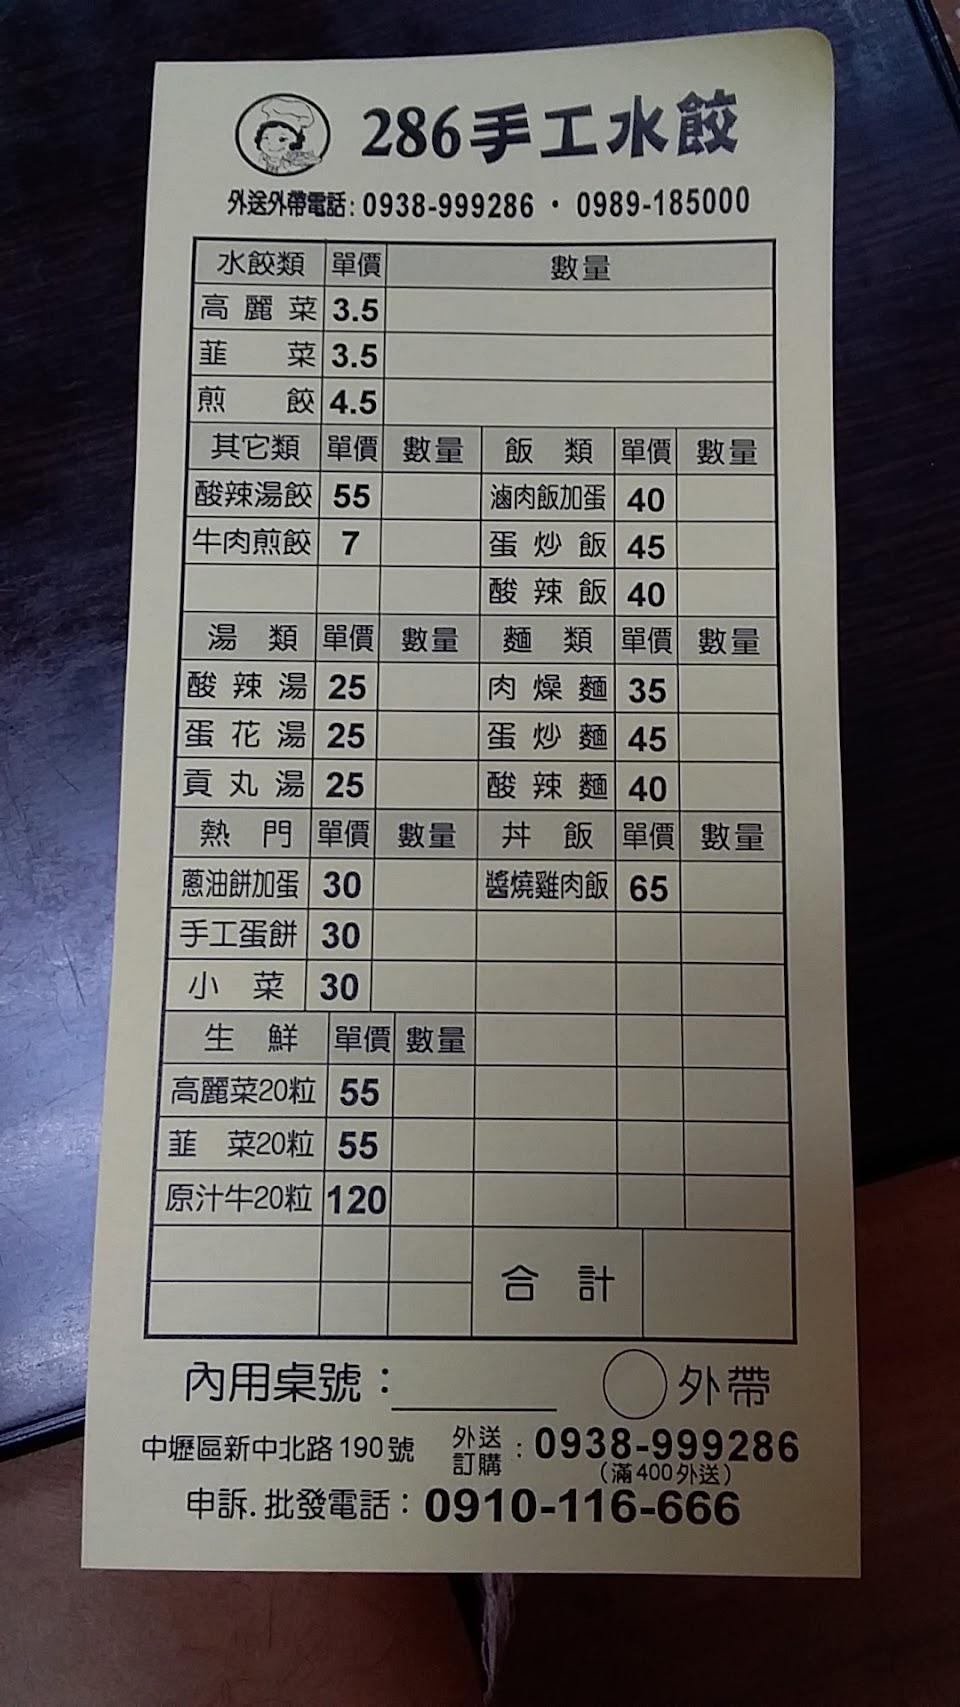 286手工水餃
外送外帶電話:0938-999286・0989-185000
水餃類 單價 數量
高麗菜 3.5
韮菜 3.5
煎餃 4.5
其它類 單價 數量 飯類 單價 數量
酸辣湯餃 55 滷肉飯加蛋 40
牛肉煎餃 7 蛋炒飯 45
酸辣飯 40
湯類 單價 數量 麵類 單價 數量
酸辣湯 25 肉燥麵 35
蛋花湯 25 蛋炒麵 45
貢丸湯 25 酸辣麵 40
熱門 單價 數量 丼飯 單價 數量
蔥油餅加蛋 30 醬燒雞肉飯 65
手工蛋餅 30
小菜 30
生鮮 單價 數量
高麗菜20粒 55
韮菜20粒 55
原汁牛20粒 120
合計
內用桌號: 外帶
中壢區新中北路190號 外送訂購:0938-999286
(滿400外送)
申訴.批發電話:0910-116-666